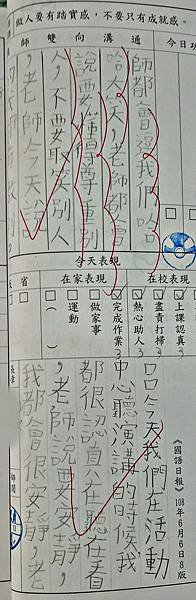 做人要有踏實感，不要只有成就感。
今日功
師雙向溝通
師都會逗我們哈
哈大笑，老師都會
說要懂尊重別
人，不要取笑別人
，老師今天說
今天表現
在校表現
上課認真 3
盡責打掃 3
熱心助人 3
完成作業 3
在家表現
做家事
運動
( )
省
《國語日報》108年6月6日8版
口口今天我們在活動
中心聽演講的時候我
都很認真在聽在看
，老師說要安靜，
我都會很安靜，老